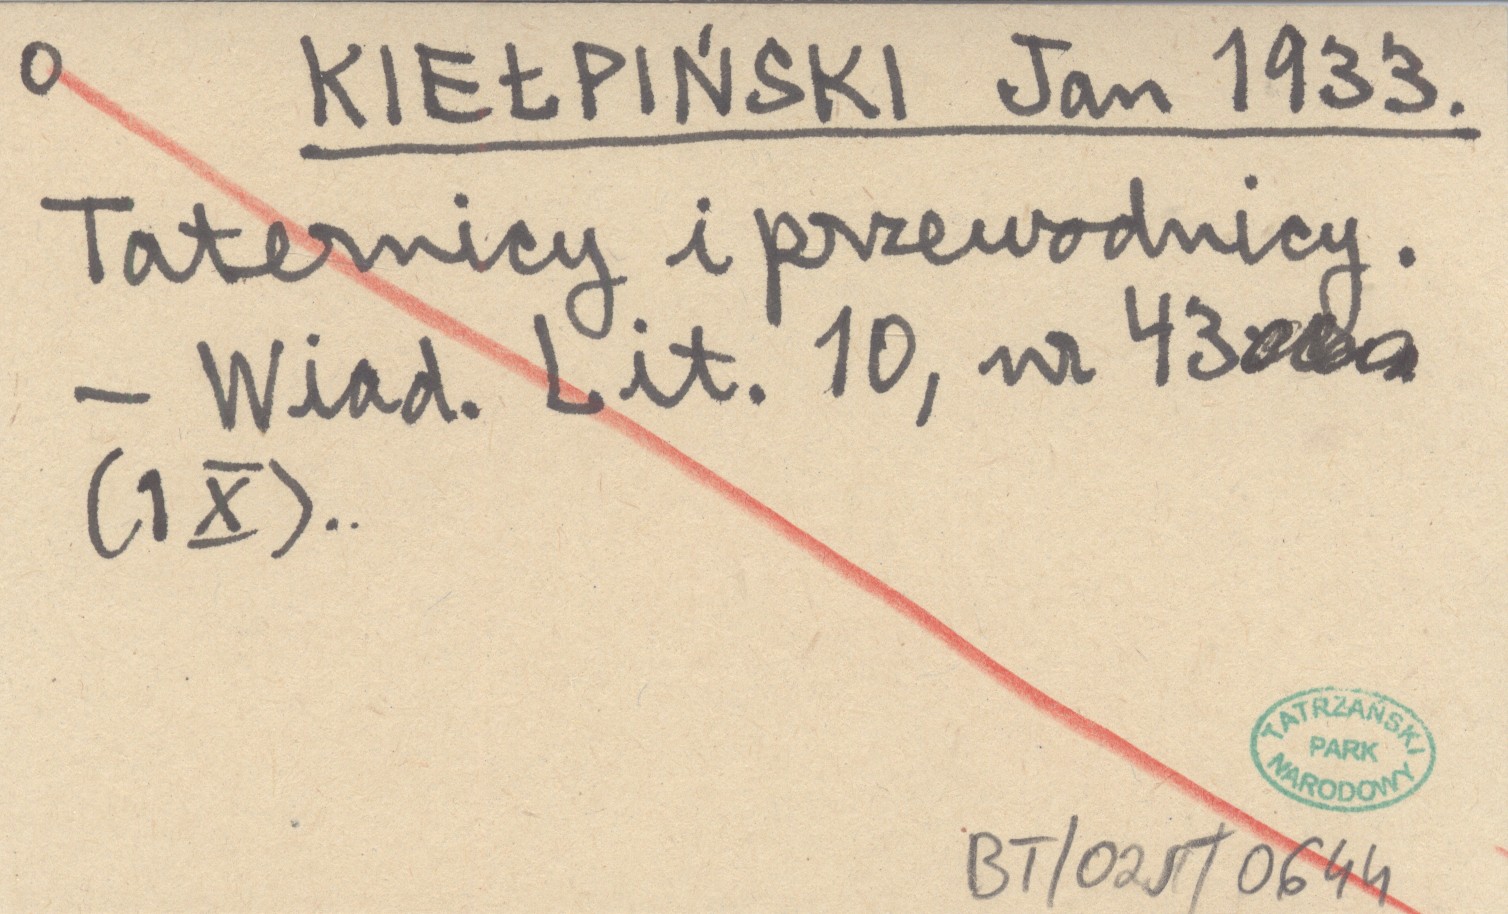 O KIEŁPIŃSKI Jan 1933.
Taternicy i przewodnicy.
– Wiad. Lit. 10, nr 43
(1 X)..
TATRZAŃSKI
PARK
NARODOWY
BT/025/0644